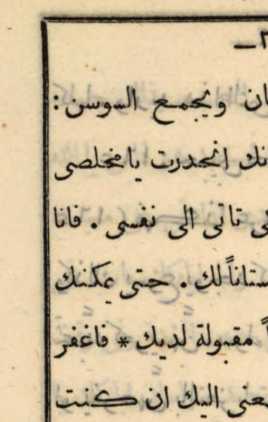 ـان ويجمع السوسن :
ـنك انحدرت يا مخلصى
ـى تاتى الى نفسى . فانا
ـستاناً لك . حتى يمكنك
ـاً مقبولة لديك * فاغفر
ـعنى اليك ان كنت